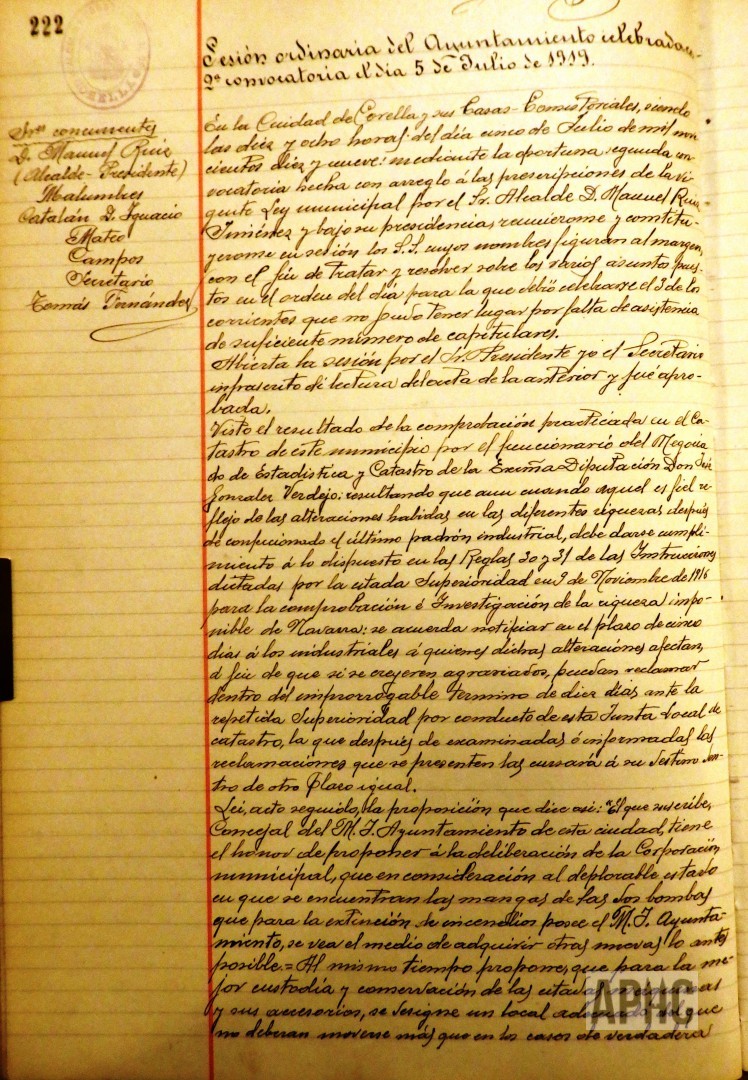 222
Sesión ordinaria del Ayuntamiento celebrada en
2ª convocatoria el día 5 de Julio de 1919.
Sres concurrentes
D. Manuel Ruiz
(Alcalde-Presidente)
Malumbres
Catalán D. Ignacio
Mateo
Campos
Secretario
Tomás Fernández
En la Ciudad de Corella y sus Casas-Consistoriales, siendo
las diez y ocho horas del día cinco de Julio de mil nove-
cientos diez y nueve: mediante la oportuna segunda con-
vocatoria hecha con arreglo á las prescripciones de la vi-
gente Ley municipal por el Sr. Alcalde D. Manuel Ruiz
Jiménez y bajo su presidencia, reunieronse y constitu-
yeronse en sesión los S.S. cuyos nombres figuran al margen,
con el fin de tratar y resolver sobre los varios asuntos pues-
tos en el orden del día para la que debió celebrarse el 3 de los
corrientes que no pudo tener lugar por falta de asistencia
de suficiente número de capitulares.
Abierta la sesión por el Sr. Presidente yo el Secretario
infrascrito dí lectura del acta de la anterior y fué apro-
bada.
Visto el resultado de la comprobación practicada en el Ca-
tastro de este municipio por el funcionario del Negocia
do de Estadistica y Catastro de la Excma Diputación Don
Gonzalez Verdejo: resultando que aun cuando aquel es fiel re-
flejo de las alteraciones habidas en las diferentes riquezas después
de confeccionado el último padrón industrial, debe darse cumpli-
miento á lo dispuesto en las Reglas 30 y 31 de las Instrucciones
dictadas por la citada Superioridad en de Noviembre de 1916
para la comprobación é Investigación de la riqueza impo-
nible de Navarra: se acuerda notificar en el plazo de cinco
dias á los industriales á quienes dichas alteraciones afectan,
á fin de que si se creyeren agraviados, puedan reclamar
dentro del improrrogable termino de diez días ante la
repetida Superioridad por conducto de esta Junta local de
catastro, la que después de examinadas é informadas las
reclamaciones que se presenten las cursará á su destino den-
tro de otro plazo igual.
Leí, acto seguido, la proposición que dice así: "El que suscribe,
Concejal del M. I. Ayuntamiento de esta ciudad, tiene
el honor de proponer á la deliberación de la Corporación
municipal, que en consideración al deplorable estado
en que se encuentran las mangas de las dos bombas
que para la extinción de incendios posee el M. I. Ayunta-
miento, se vea el medio de adquirir otras nuevas lo antes
posible.= Al mismo tiempo propone, que para la me-
jor custodia y conservación de las citadas
y sus accesorios, se designe un local adecuado del que
no deberan moverse más que en los casos de verdadera
APHC